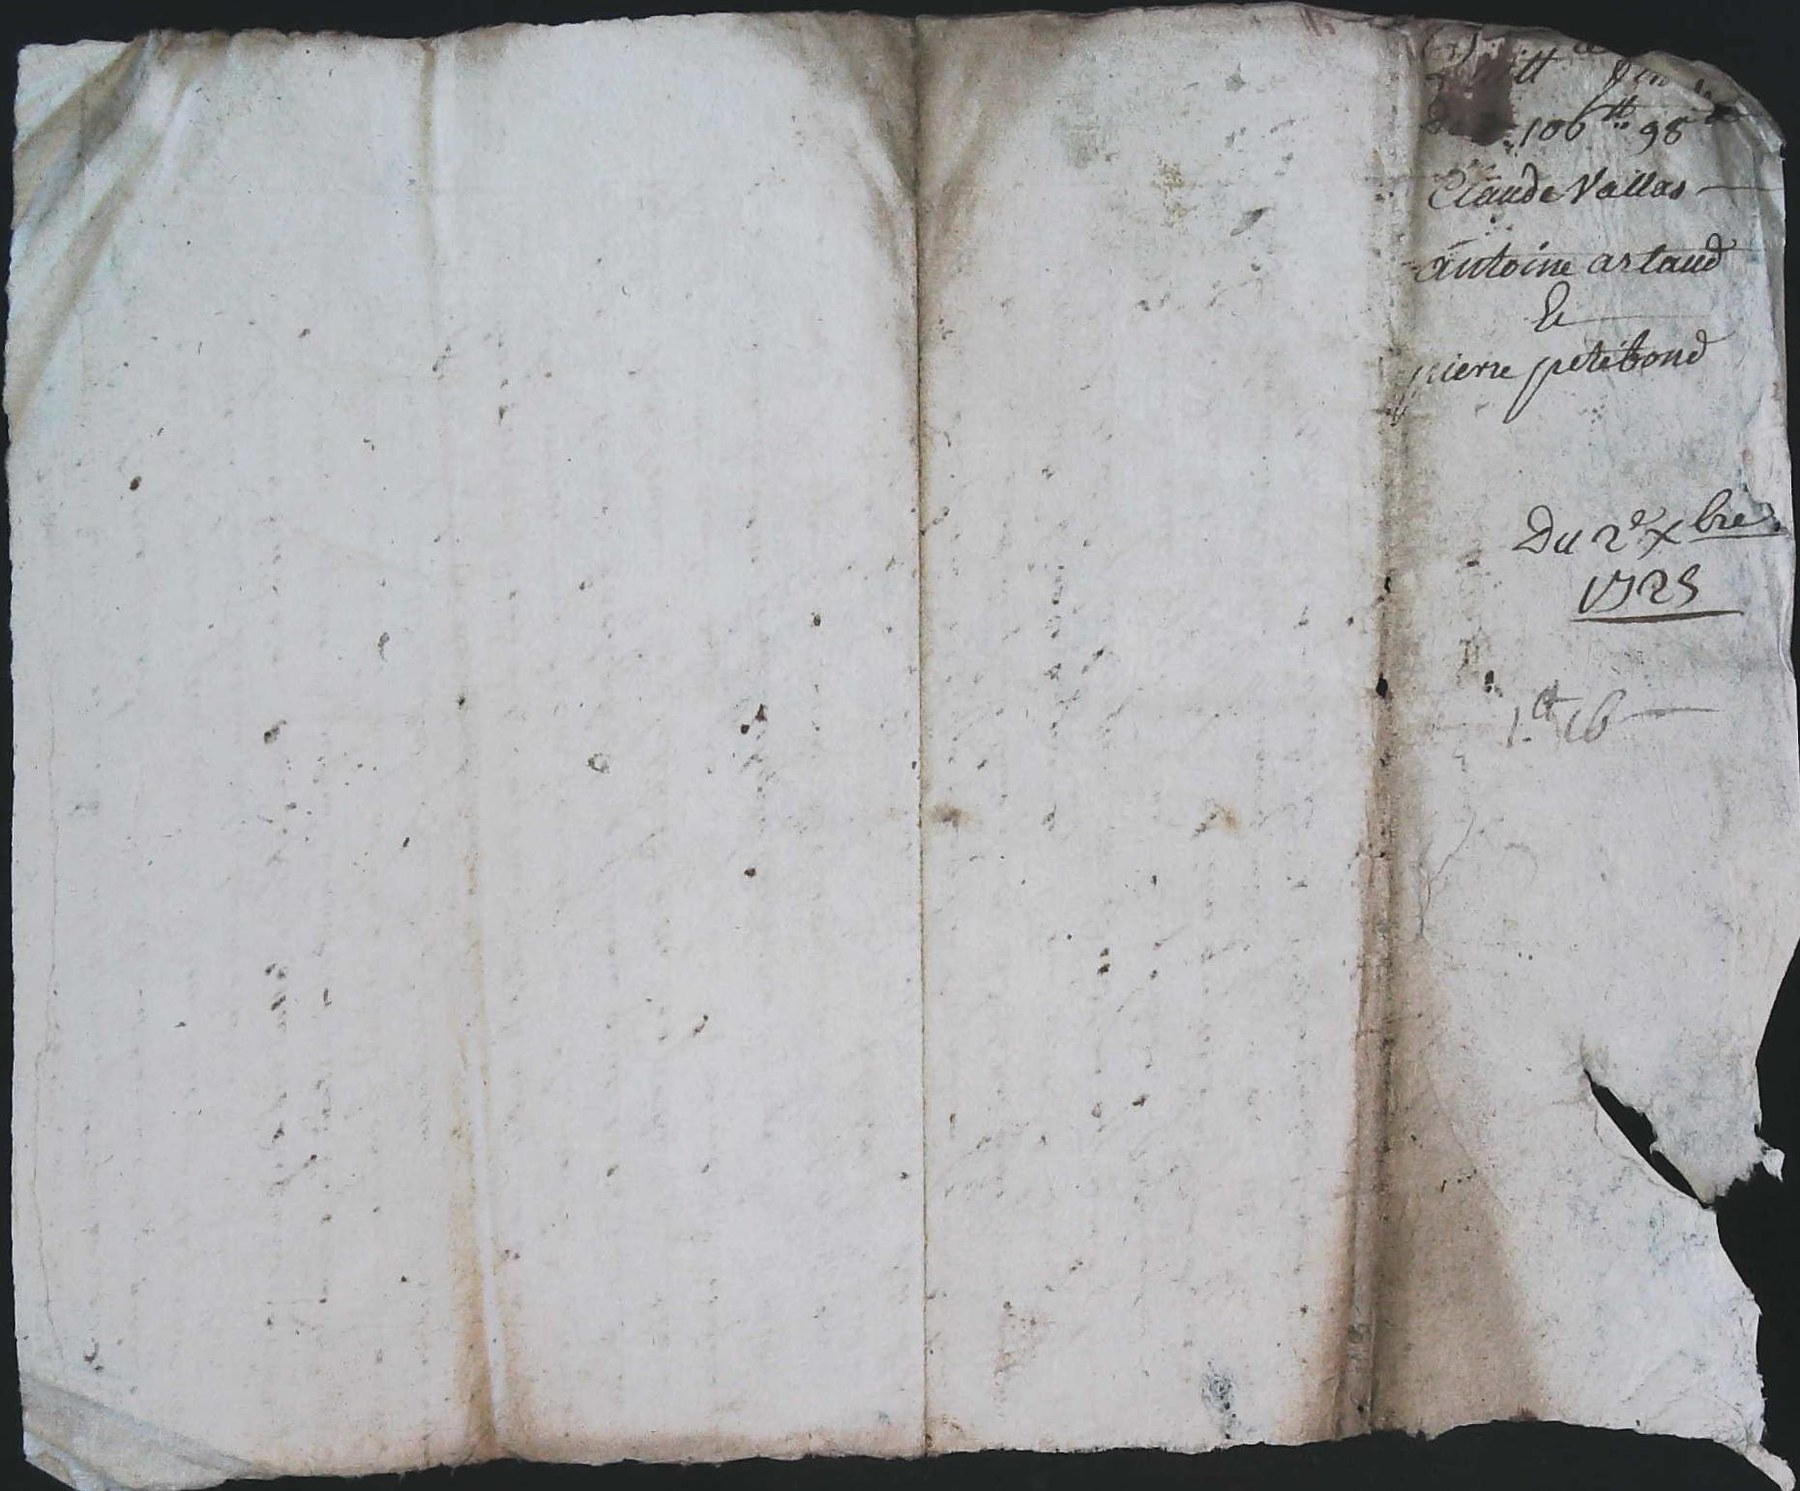 106  tt 9s
Claude Vallas
antoine artaud
&
pierre petitbond
Du 2e Xbre
1725
1 tt 16